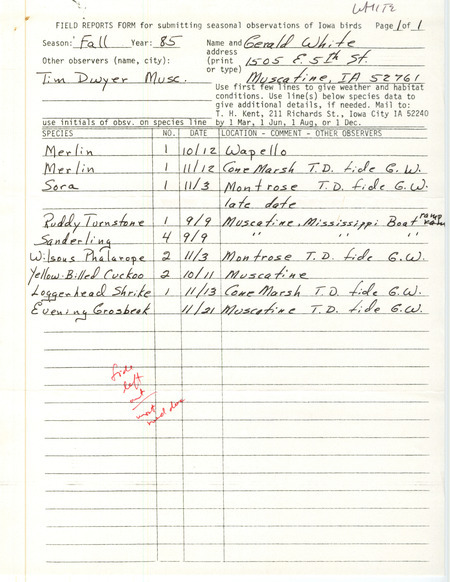 WHITE
FIELD REPORTS FORM for submitting seasonal observations of Iowa birds Page 1 of 1
Season: Fall Year: 85 Name and Gerald White
address
Other observers (name, city): (print 1505 E. 5th St.
or type)
Tim Dwyer Musc. Muscatine, IA 52761
Use first few lines to give weather and habitat
conditions. Use line(s) below species data to
give additional details, if needed. Mail to:
T. H. Kent, 211 Richards St., Iowa City IA 52240
use initials of obsv. on species line by 1 Mar, 1 Jun, 1 Aug, or 1 Dec.
SPECIES NO. DATE LOCATION - COMMENT - OTHER OBSERVERS
Merlin 1 10/12 Wapello
Merlin 1 11/12 Cone Marsh T.D. fide G.W.
Sora 1 11/3 Montrose T.D. fide G.W.
late date
Ruddy Turnstone 1 9/9 Muscatine, Mississippi Boat ramp
Sanderling 4 9/9 " " "
Wilsons Phalarope 2 11/3 Montrose T.D. fide G.W.
Yellow-Billed Cuckoo 2 10/11 Muscatine
Loggerhead Shrike 1 11/13 Cone Marsh T.D. fide G.W.
Evening Grosbeak 11/21 Muscatine T.D. fide G.W.
fide
left
out